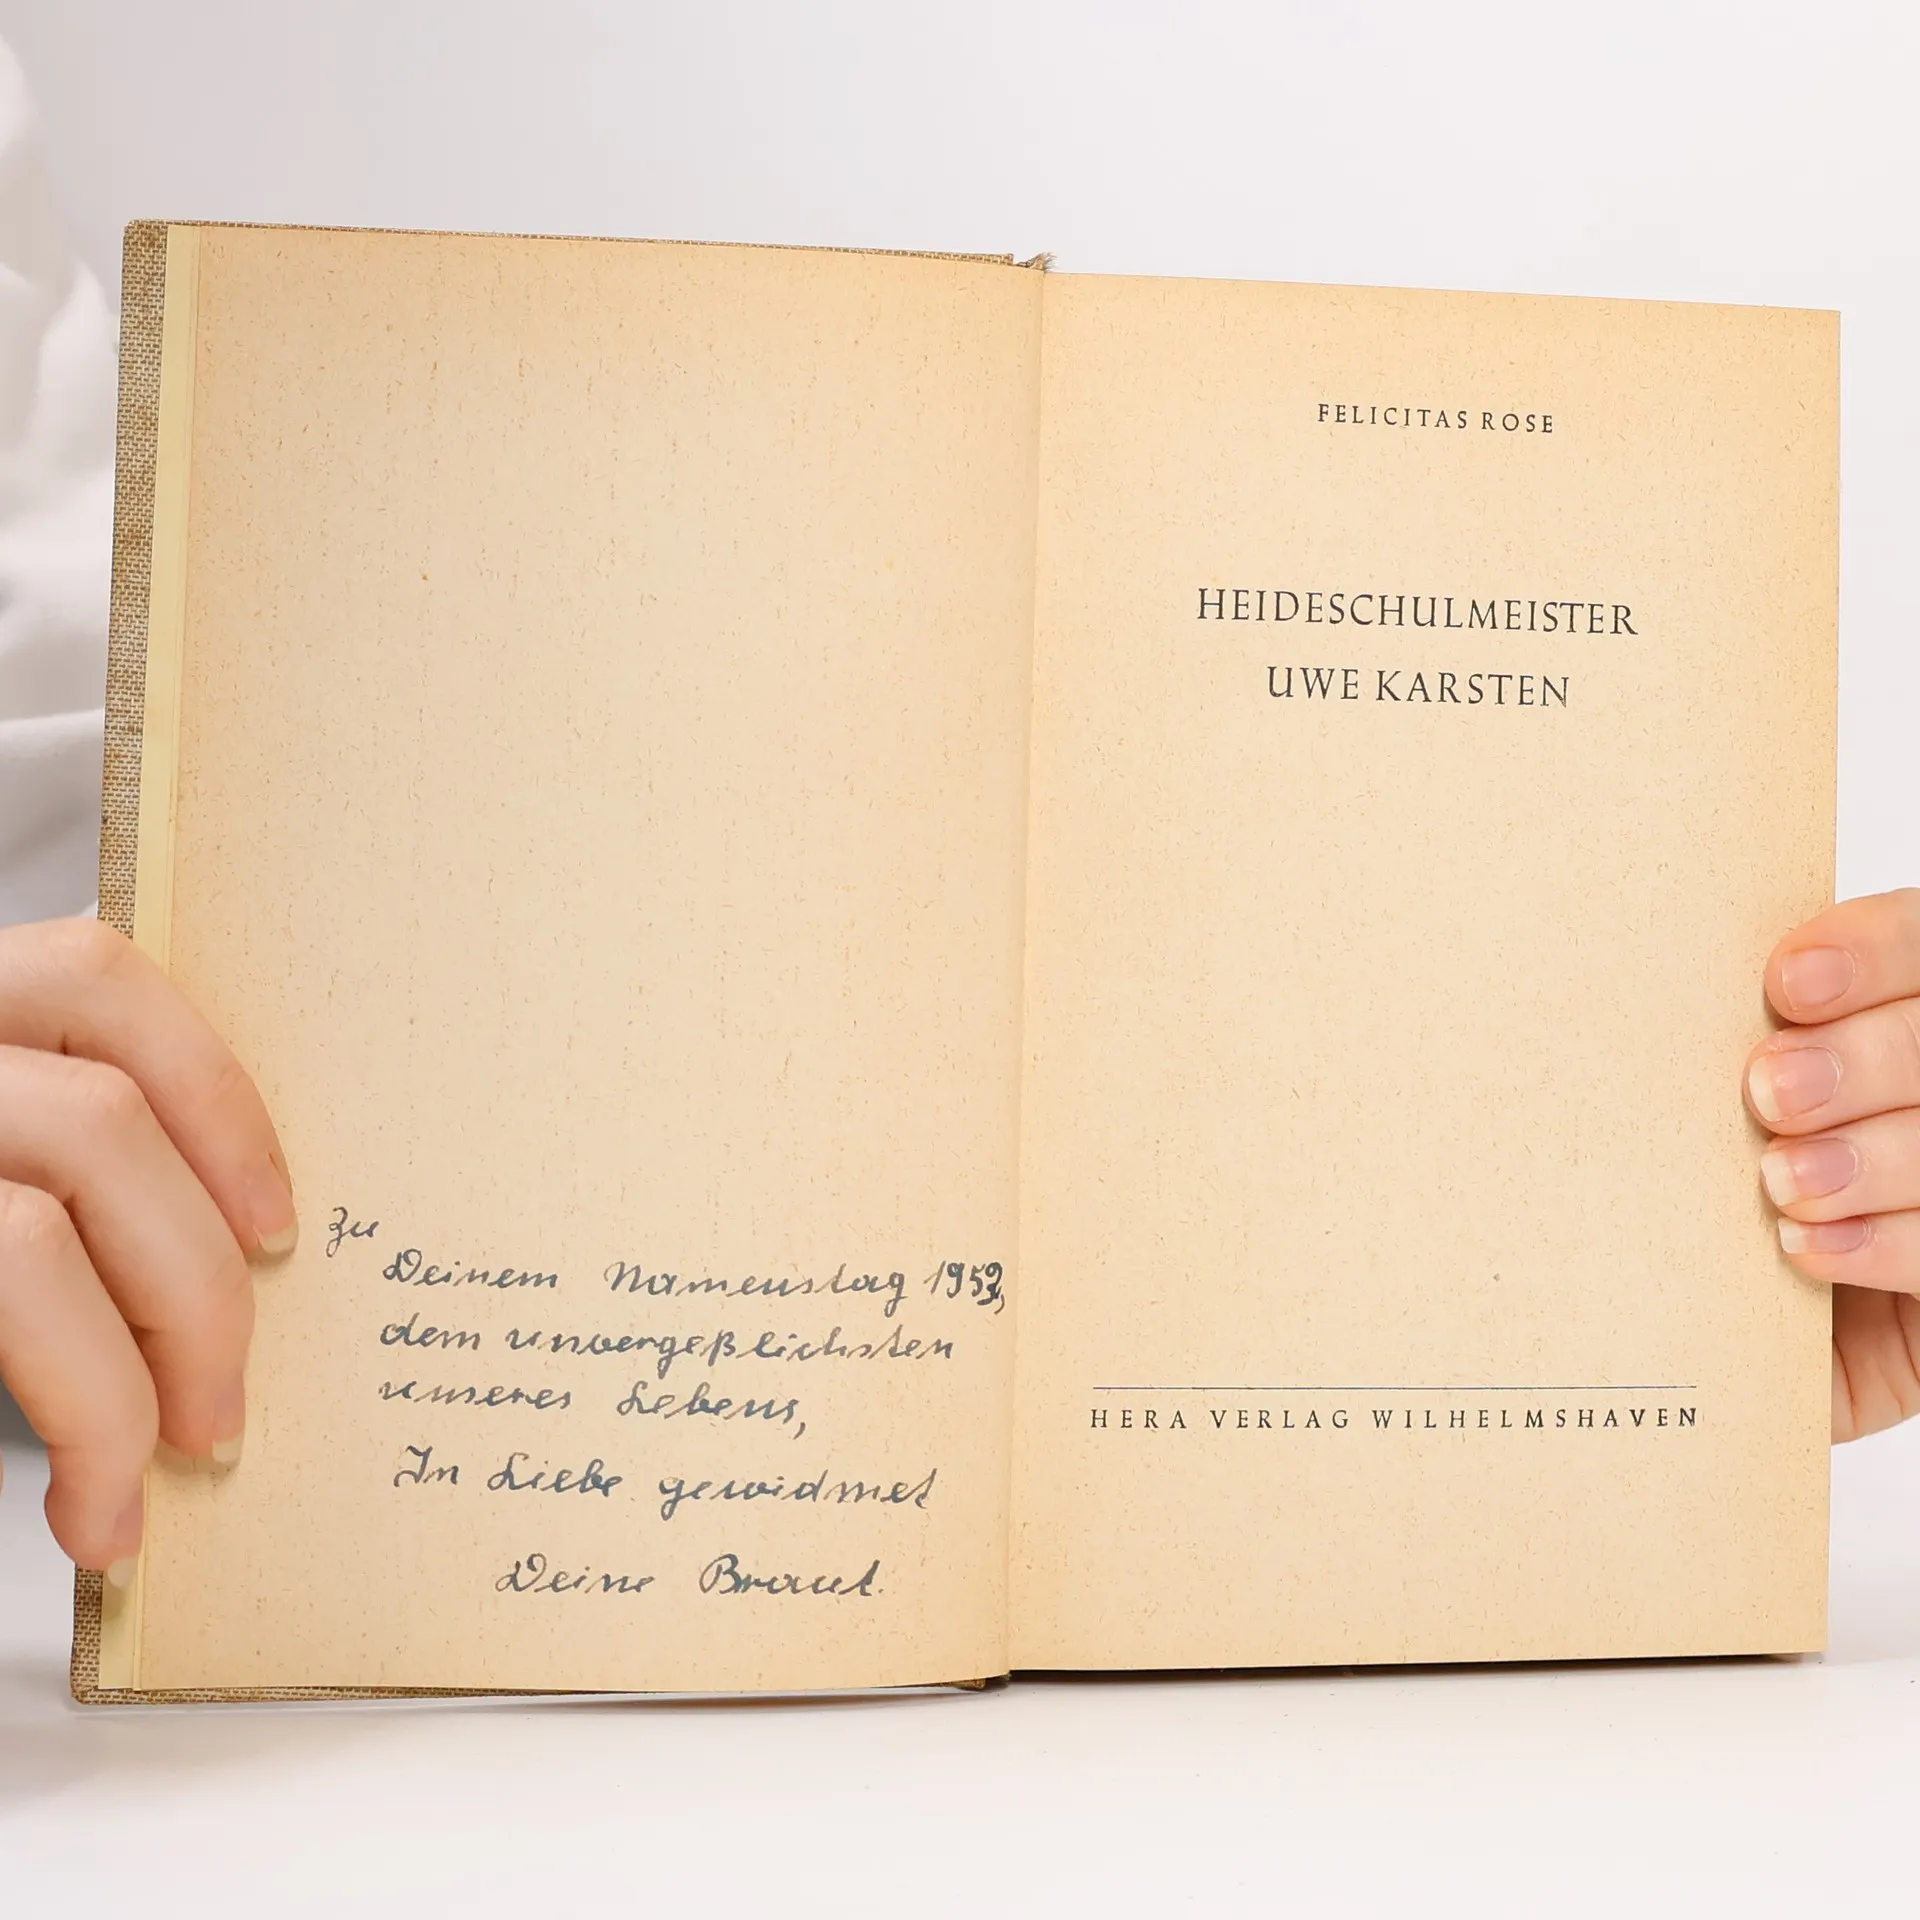 Zu
Deinem Namenstag 1952,
dem unvergeßlichsten
unseres Lebens,
In Liebe gewidmet
Deine Braut.
FELICITAS ROSE
HEIDESCHULMEISTER
UWE KARSTEN
HERA VERLAG WILHELMSHAVEN